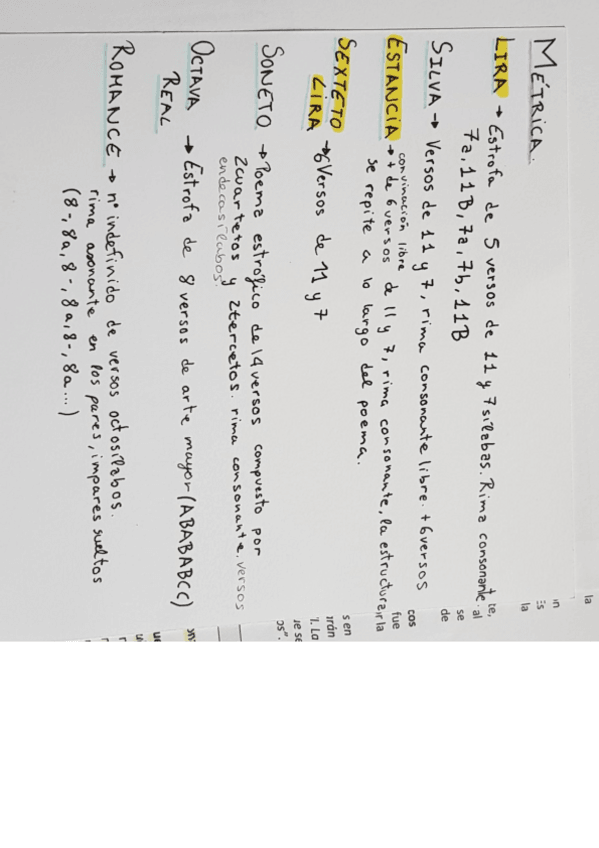 MÉTRICA.
LIRA → Estrofa de 5 versos de 11 y 7 sílabas. Rima consonante.
7a, 11B, 7a, 7b, 11B
SILVA → Versos de 11 y 7, rima consonante libre. +6 versos
convinación libre
ESTANCIA → + de 6 versos de 11 y 7, rima consonante, la estructura
se repite a lo largo del poema.
SEXTETO
LIRA → 6 Versos de 11 y 7
SONETO → Poema estrófico de 14 versos compuesto por
2 cuartetos y 2 tercetos. rima consonante. versos
endecasílabos.
OCTAVA → Estrofa de 8 versos de arte mayor (ABABABCC)
REAL
ROMANCE → nº indefinido de versos octosílabos.
rima asonante en los pares, impares sueltos
(8-, 8a, 8-, 8a, 8-, 8a...)
la
te,
al
se
de
cos
fue
ir la
s en
irán
1. La
os".